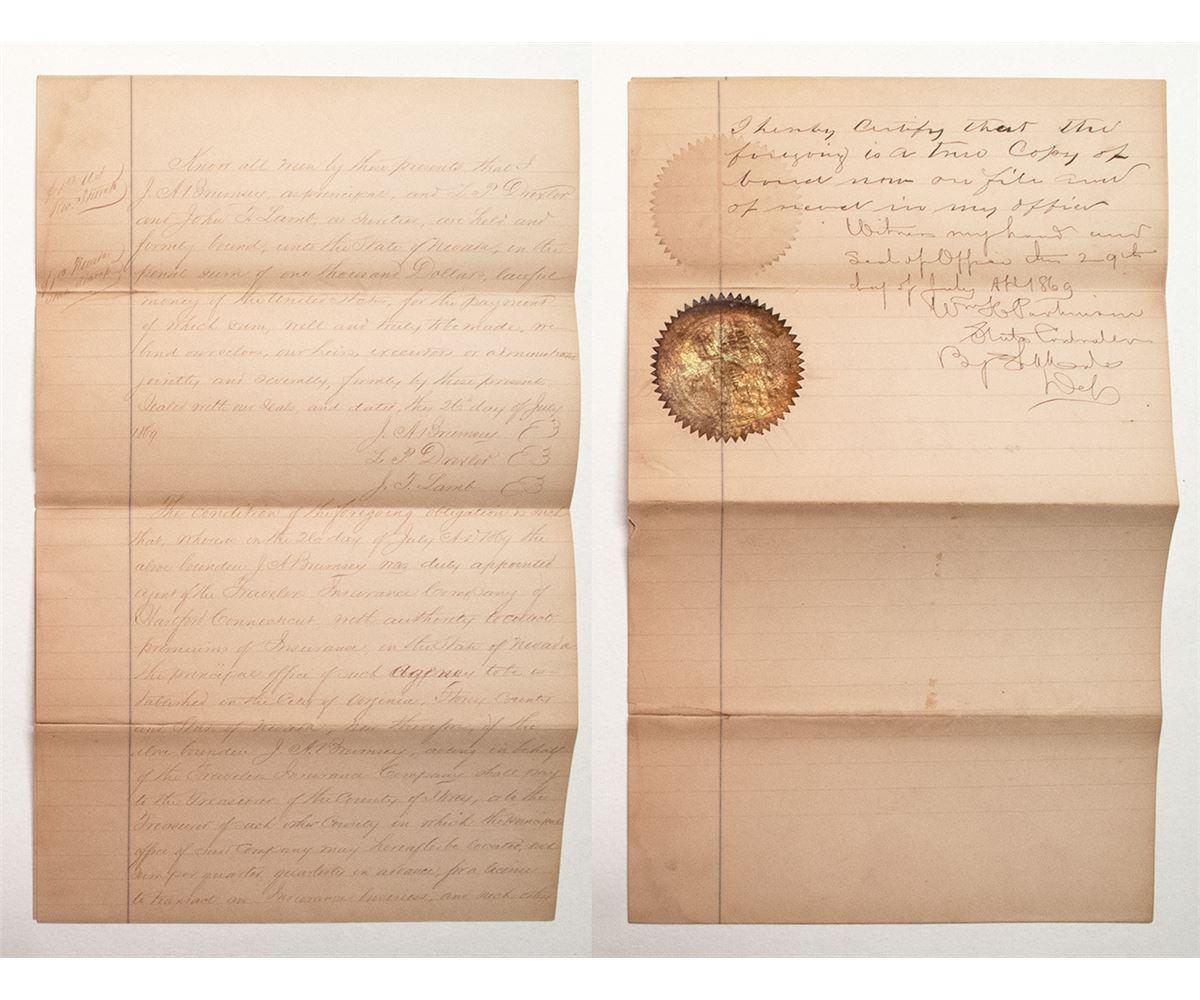 Know all men by these presents that I
J. A. Rumsey, as principal, and L. P. Drexler
and John F. Lamb, as sureties, are held and
firmly bound, unto the State of Nevada, in the
penal sum of one thousand Dollars, lawful
money of the United States, for the payment
of which sum, well and truly to be made, we
bind ourselves, our heirs, executors or administrators
jointly and severally, firmly by these presents.
Sealed with our seals, and dated, this 26 day of July
1869
J. A. Rumsey
L. P. Drexler
J. F. Lamb
The condition of the foregoing obligation is such
that, whereas on the 26 day of July AD 1869 the
above bounden J. A. Rumsey was duly appointed
agent of the Travelers Insurance Company of
Hartford Connecticut, with authority to collect
premiums of Insurance, in the State of Nevada
the principal office of such agency to be es-
tablished in the City of Virginia, Storey County
and State of Nevada, now therefore, if the
above bounden J. A. Rumsey, acting in behalf
of the Travelers Insurance Company shall pay
to the Treasurer of the County of Storey, or to the
Treasurer of such other County in which the principal
office of said Company may hereafter be located, such
sum per quarter, quarterly in advance, for a license
to transact an Insurance business, and such other
I hereby certify that the
foregoing is a true Copy of
bond now on file and
of record in my office
Witness my hand and
Seal of Office this 29th
day of July AD 1869
Wm K. Parkinson
State Controller
By
Dep